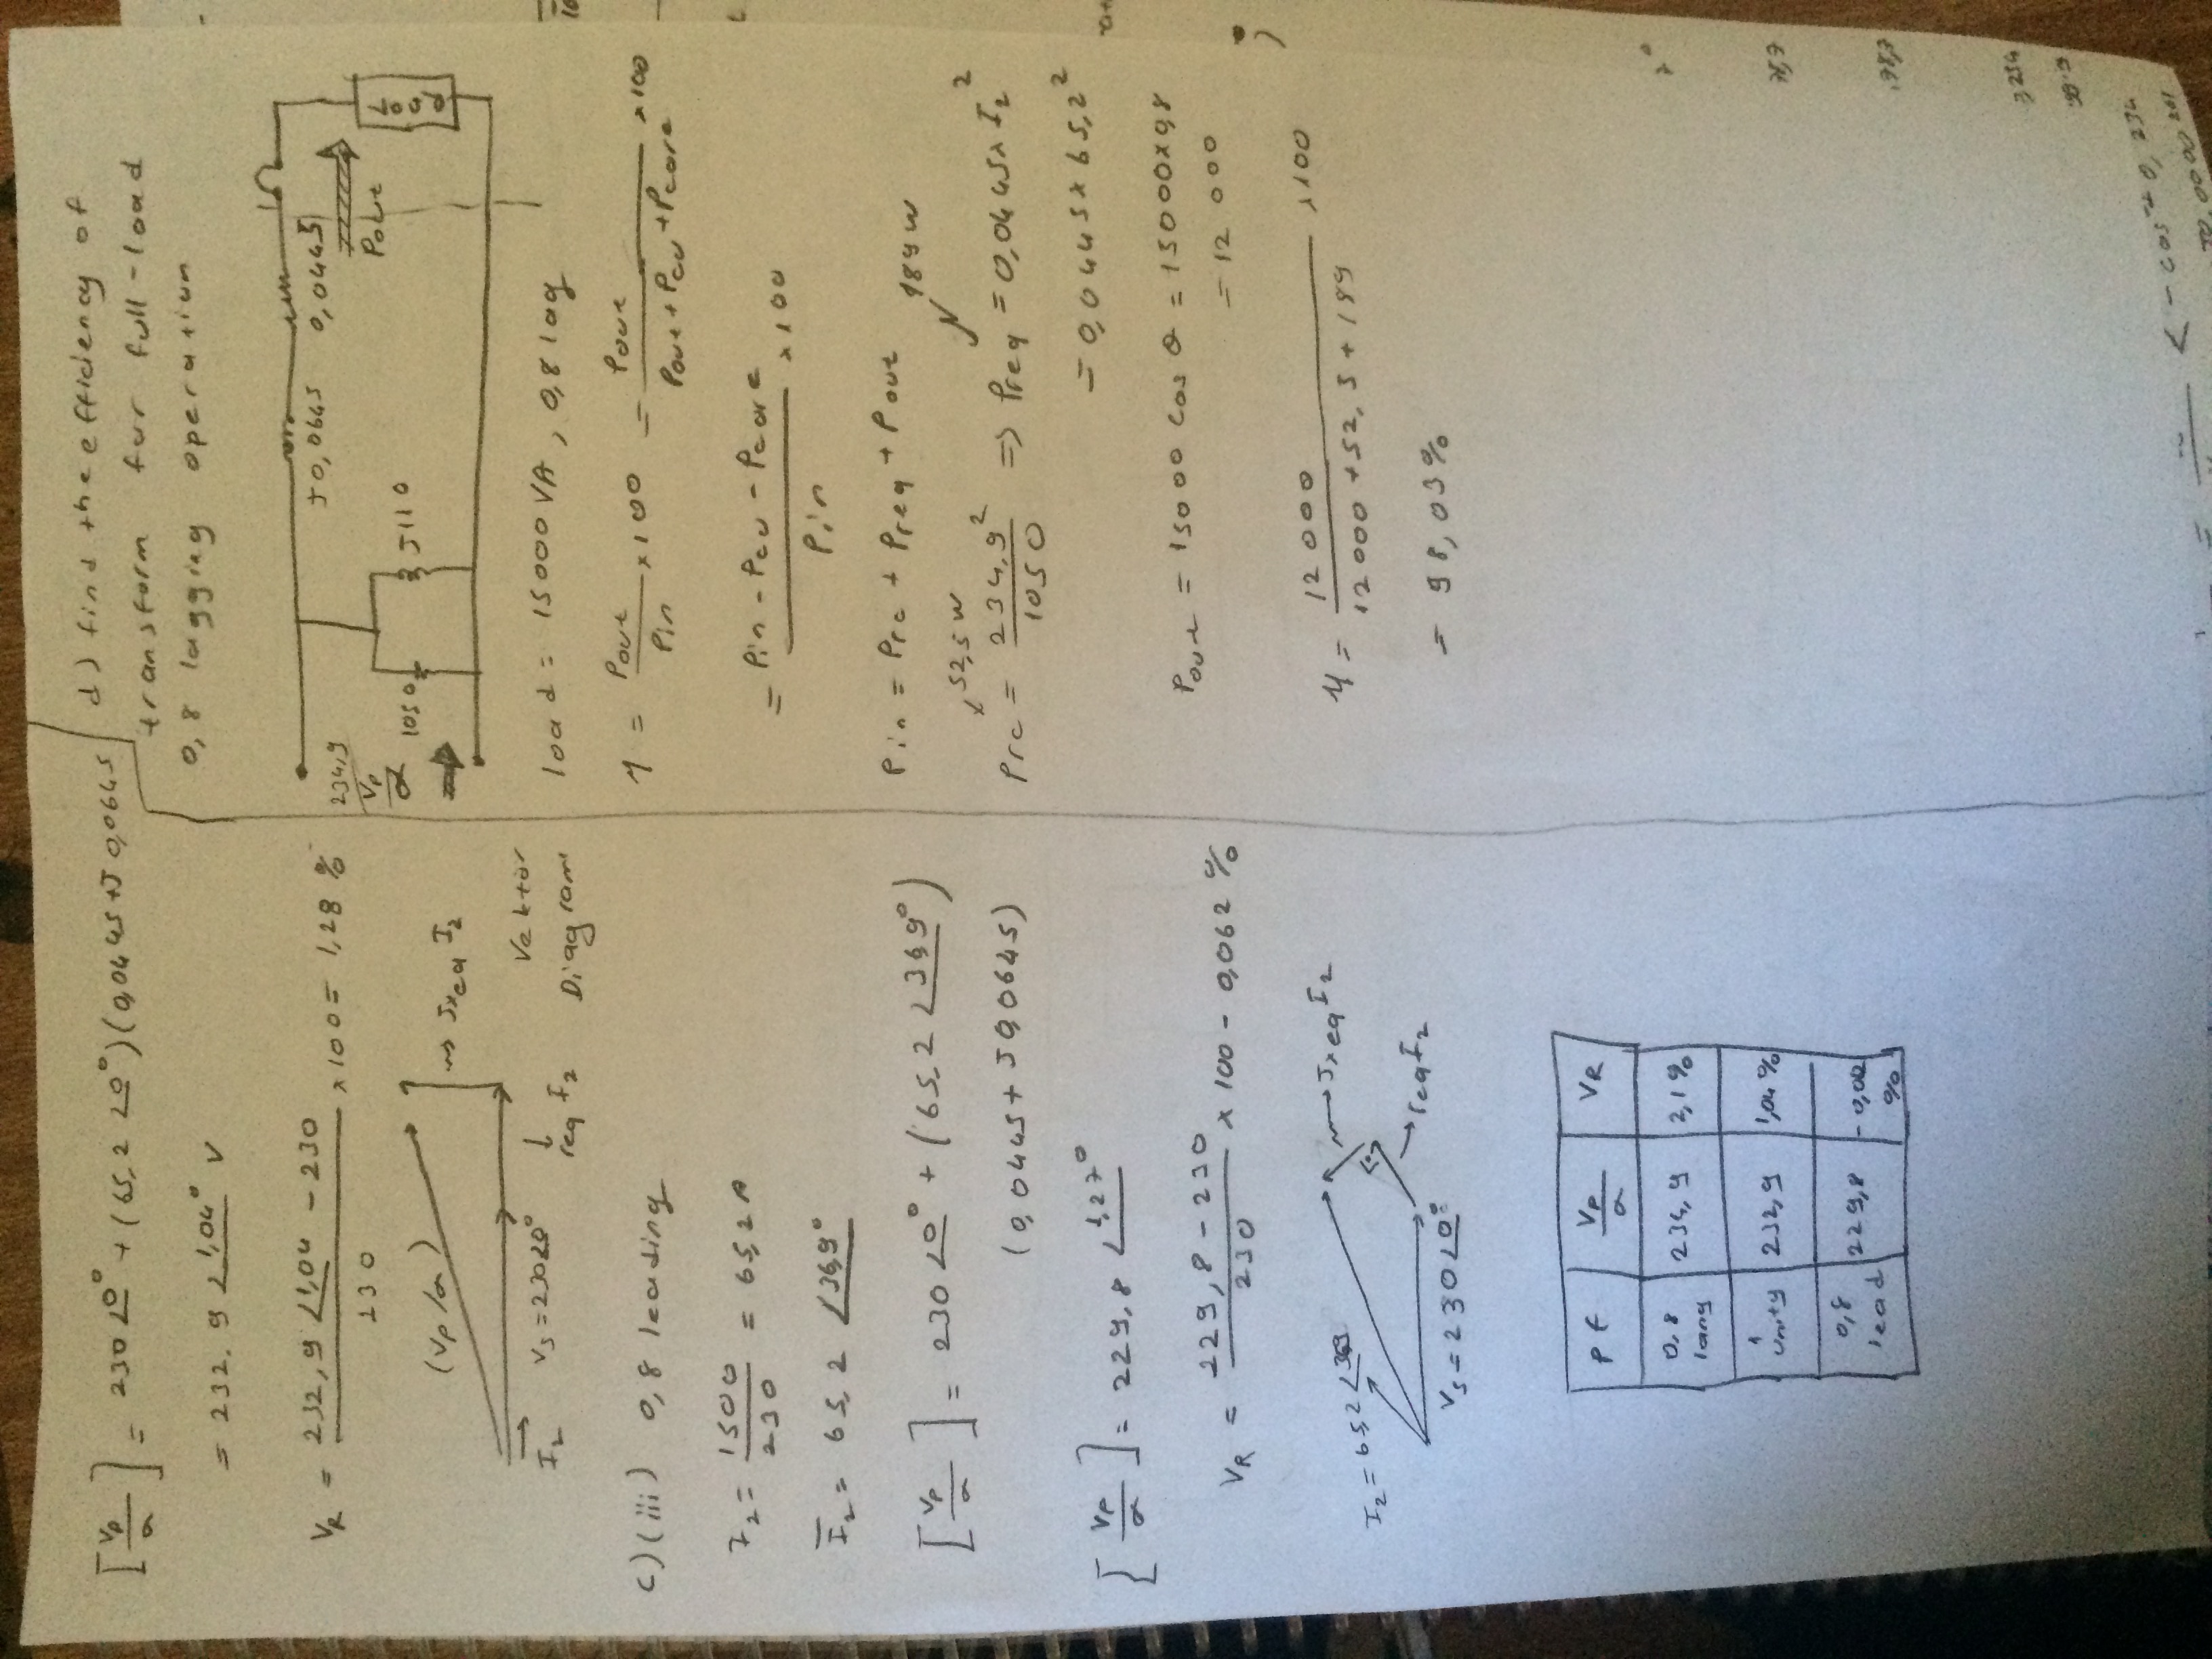 [Vp/a] = 230∠0° + (65,2∠0°)(0,0445+J0,0645
= 232.9∠1,04° V
VR = 232,9∠1,04 - 230 / 230 x100 = 1,28 %
(Vp/a)
Jxeq I2
I2 Vs=230∠0° req I2
Vektor
Diagram
c)(iii) 0,8 leading
I2 = 1500/230 = 65,2 A
I2 = 65,2 ∠36,9°
[Vp/a] = 230∠0° + (65,2∠36,9°)
(0,0445+J0,0645)
[Vp/a] = 229,8∠1,27°
VR = 229,8-230 / 230 x100 - 0,062 %
I2=65,2∠36,9
Jxeq I2
Vs=230∠0°
req I2
Pf Vp/a VR
0,8 234,9 2,1%
1 unity 232,9
0,8 lead 229,8 %
d) find the efficiency of
transform for full-load
0,8 lagging operation
234,9 Vp/a
J0,0645 0,0445
1050 J110
Pout
Load
load = 15000VA, 0,8 lag
η = Pout/Pin x100 = Pout / Pout+Pcu+Pcore x100
= Pin - Pcu - Pcore / Pin x100
Pin = Prc + Preq + Pout
52,5w 189w
Prc = 234,9² / 1050 => Preq = 0,0445x I2²
= 0,0445x65,2²
Pout = 15000 cos θ = 15000x0,8
= 12000
η = 12000 / 12000+52,5+189 x100
= 98,03%